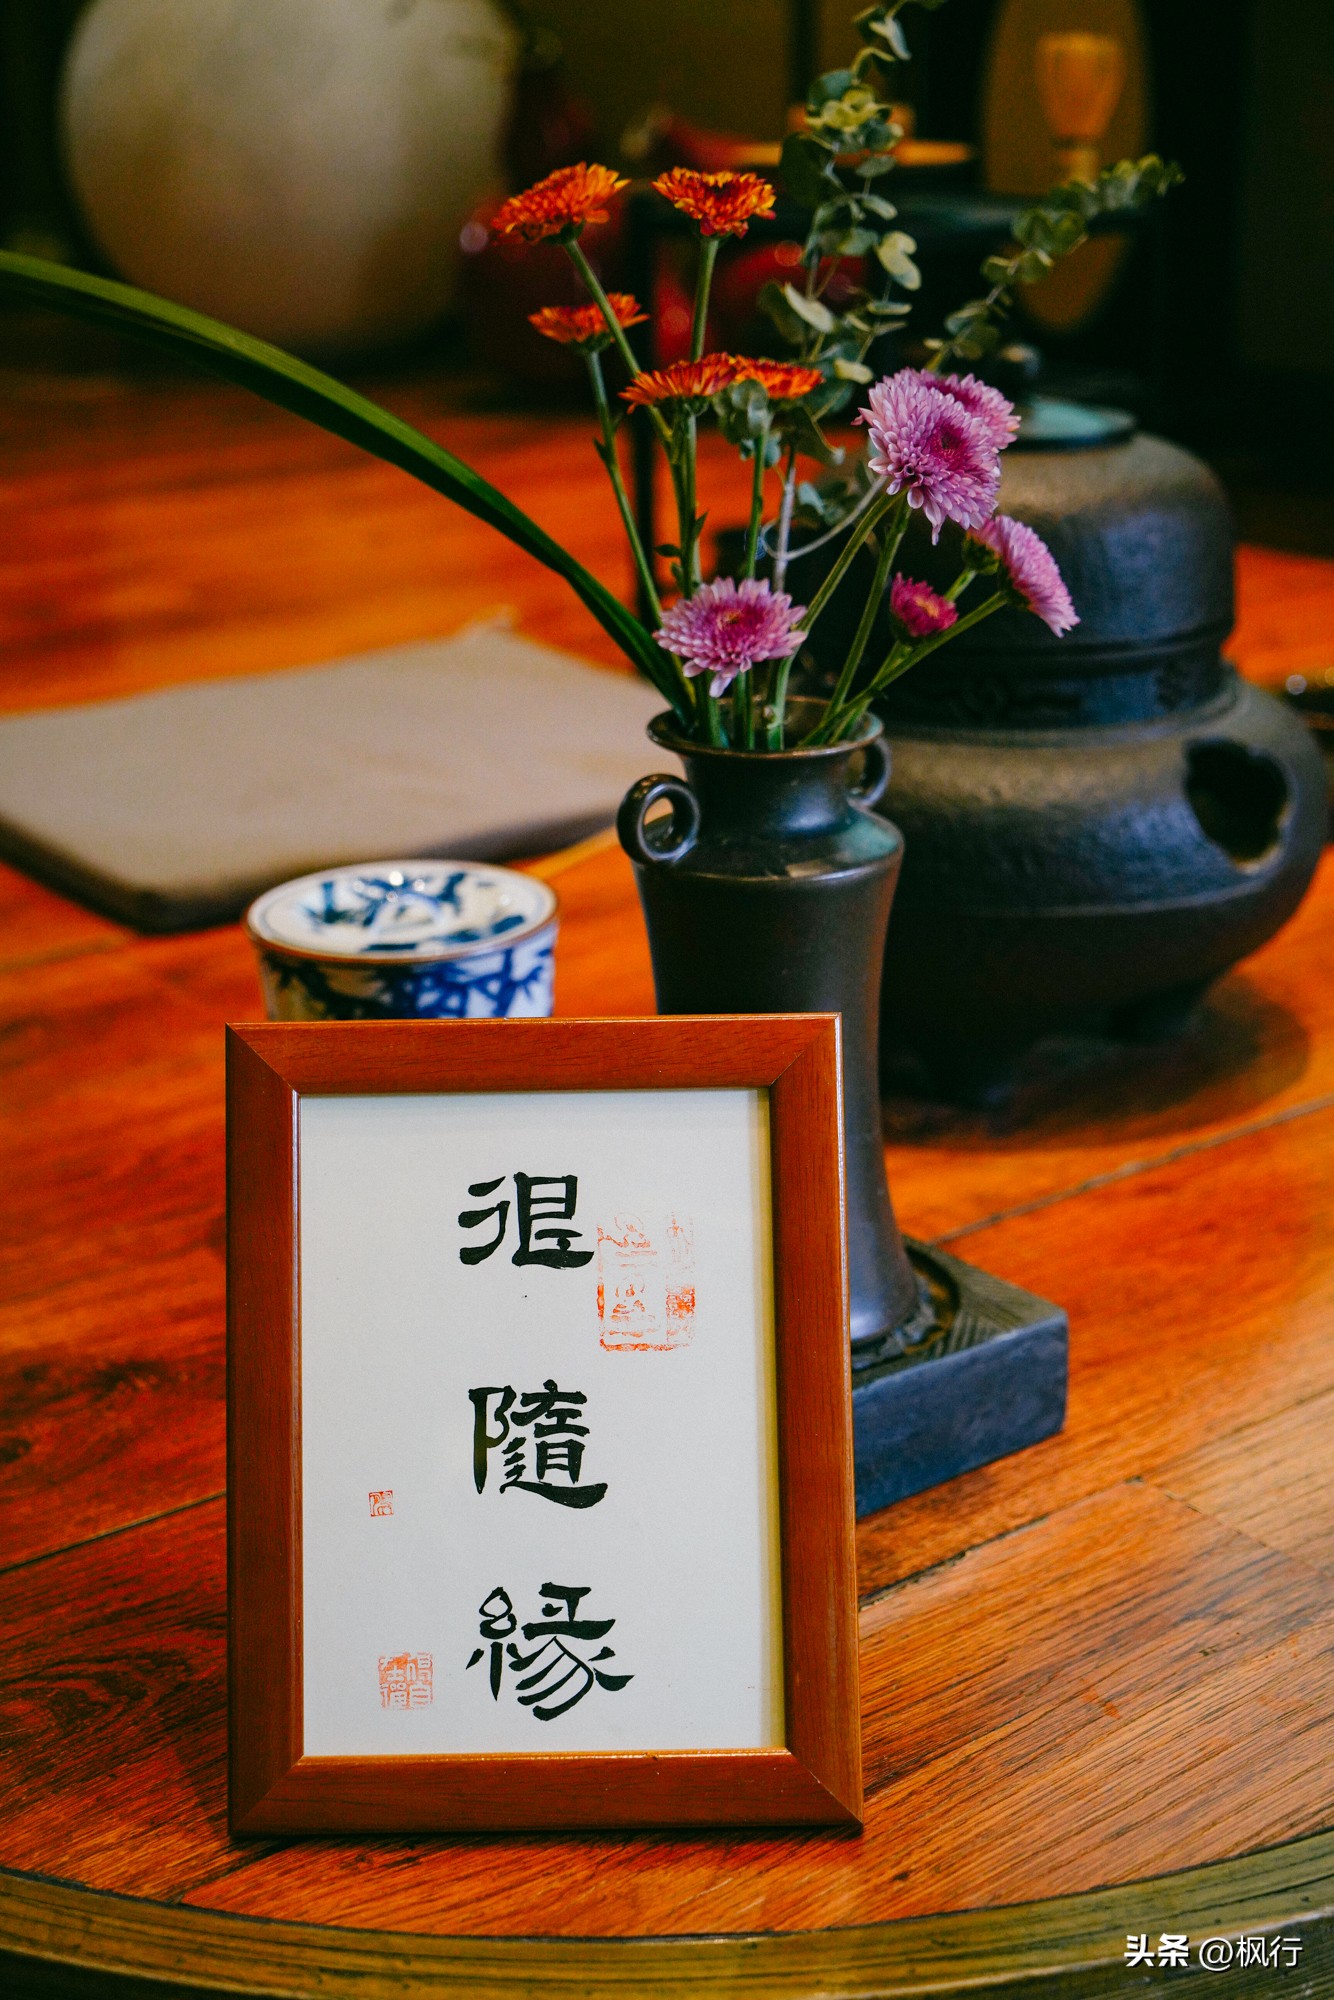 很
隨
緣
头条 @枫行